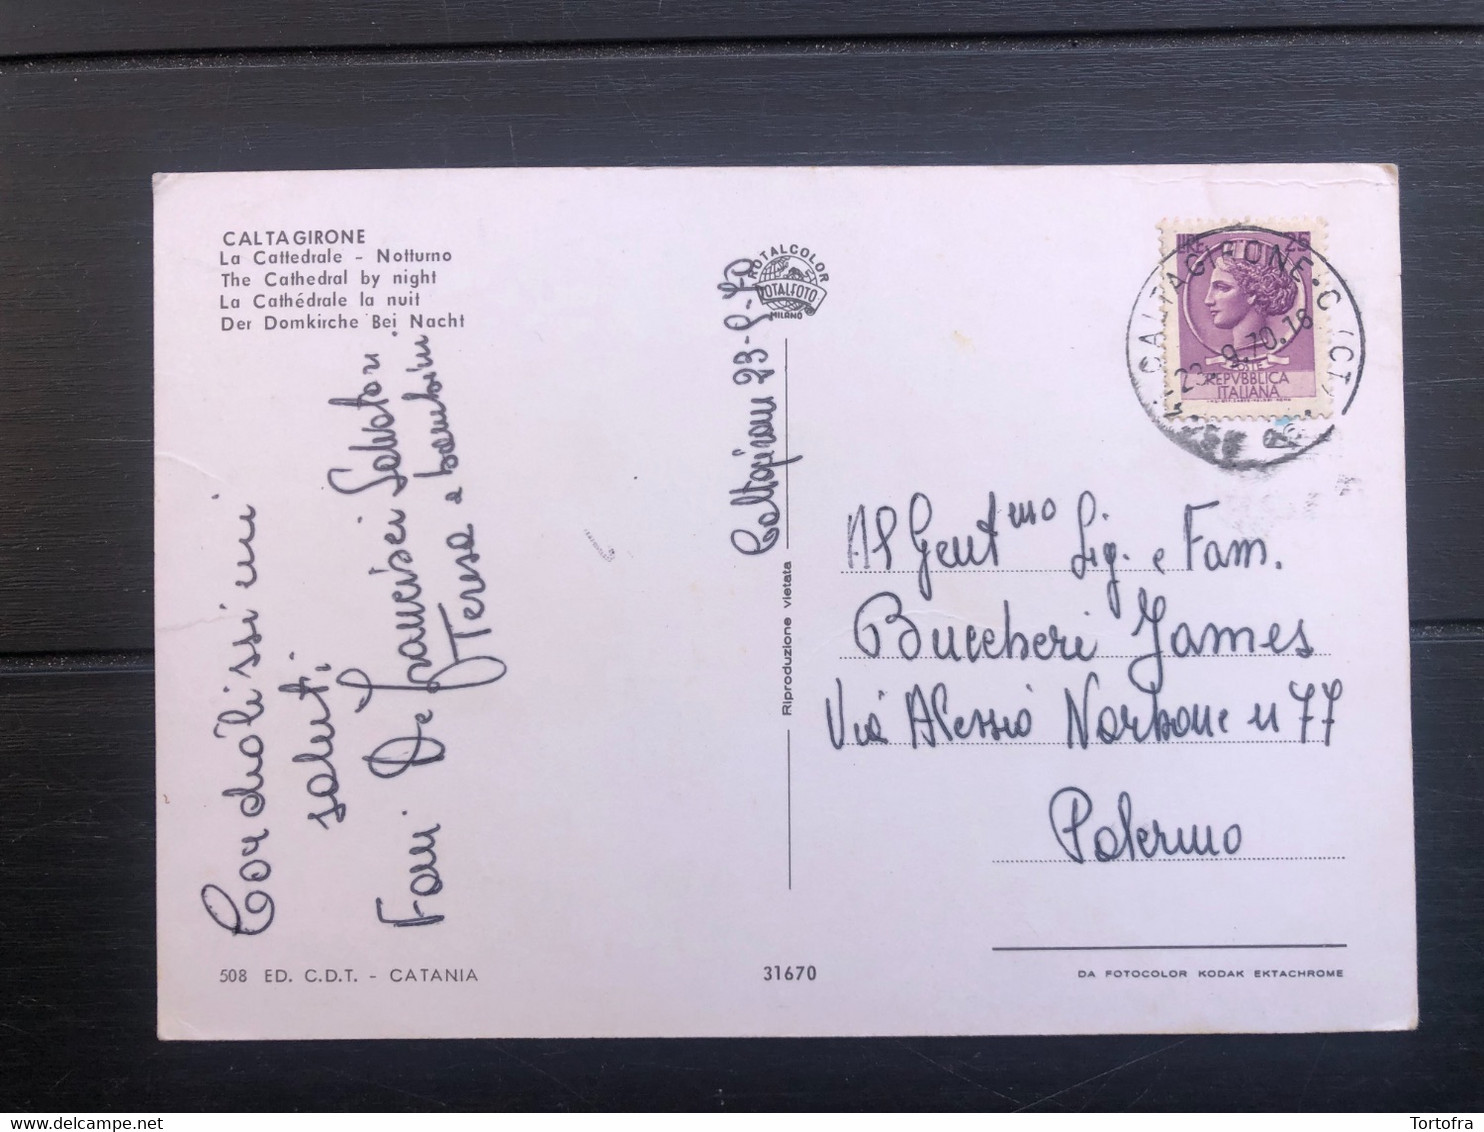 CALTAGIRONE
La Cattedrale - Notturno
The Cathedral by night
La Cathédrale la nuit
Der Domkirche Bei Nacht
Cordialissimi
saluti
Fam. De Francisci Salvatori
Teresa e bambini
508 ED. C.D.T. - CATANIA
ROTALCOLOR
ROTALFOTO
MILANO
Caltagirone 23-9-70
Riproduzione vietata
31670
LIRE 25
POSTE
REPVBBLICA
ITALIANA
CALTAGIRONE.C (CT)
23.9.70.18
Al Gent.mo Sig. e Fam.
Buccheri James
Via Alessio Narbone n 77
Palermo
DA FOTOCOLOR KODAK EKTACHROME
Tortofra